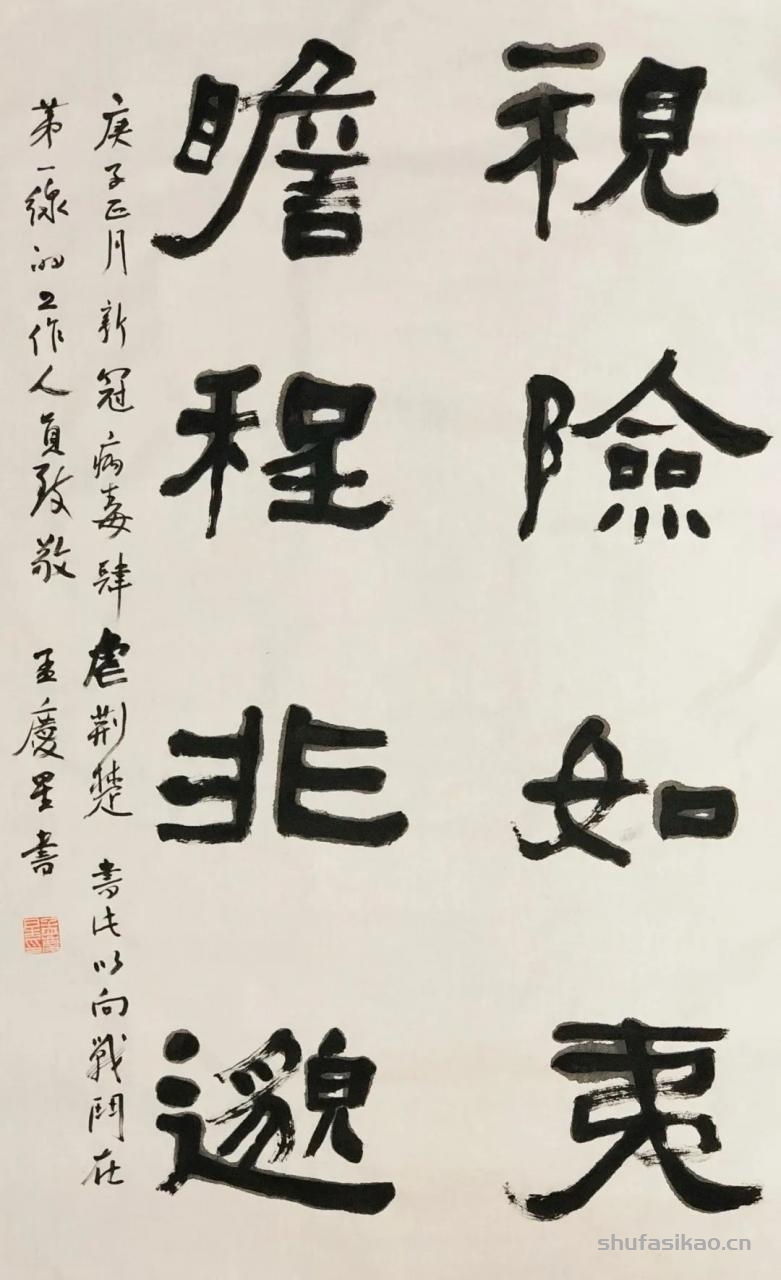 視險如夷
瞻程非邈
庚子正月新冠病毒肆虐荆楚書此以向戰鬥在
第一線的工作人員致敬 孟慶星書
shufasikao.cn